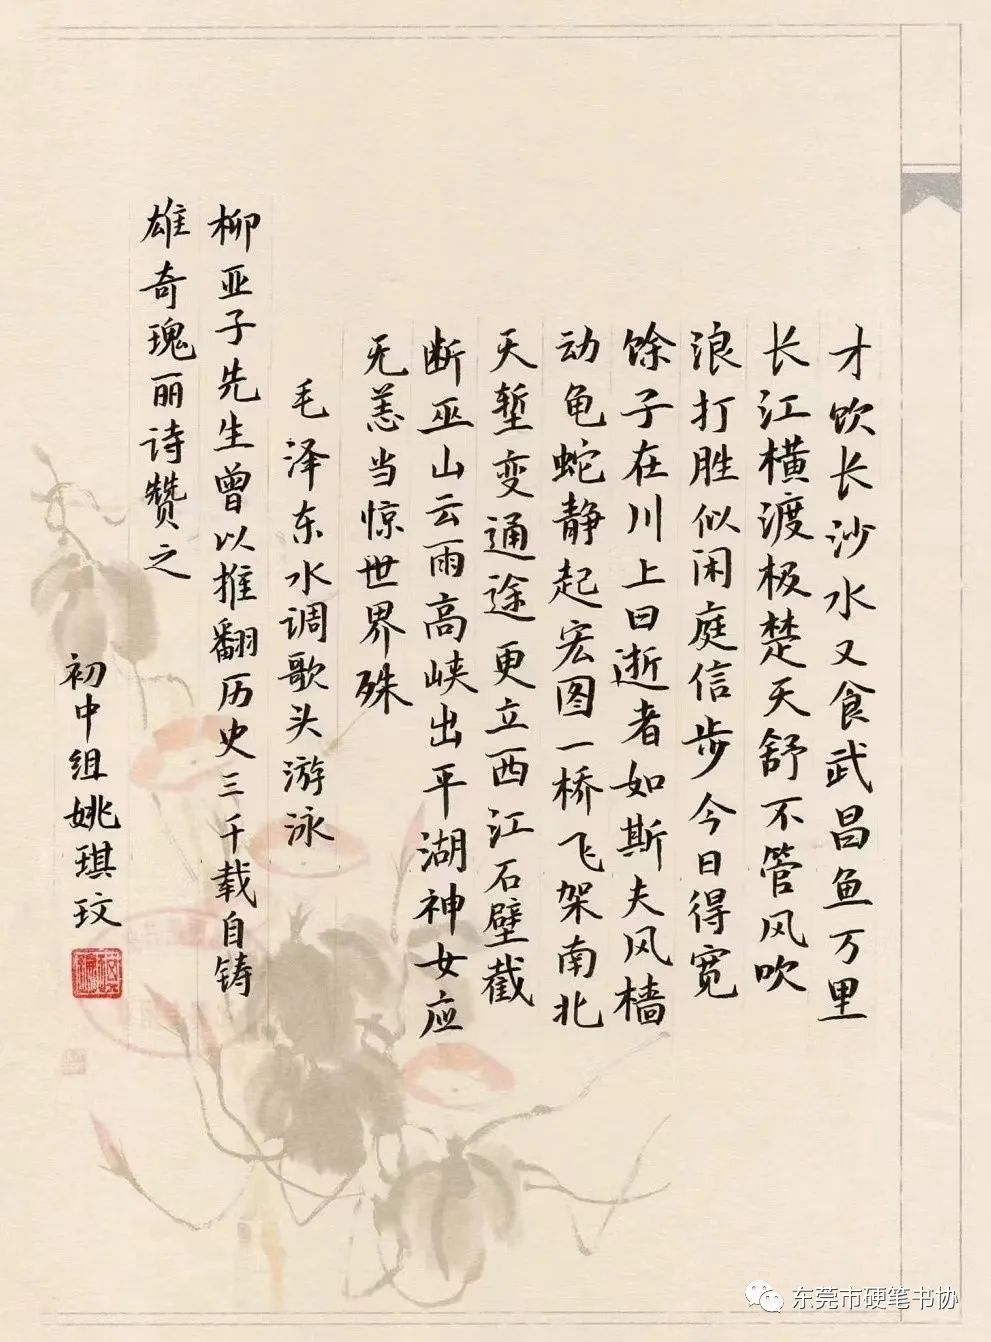 才饮长沙水又食武昌鱼万里
长江横渡极楚天舒不管风吹
浪打胜似闲庭信步今日得宽
馀子在川上曰逝者如斯夫风樯
动龟蛇静起宏图一桥飞架南北
天堑变通途更立西江石壁截
断巫山云雨高峡出平湖神女应
无恙当惊世界殊
毛泽东水调歌头游泳
柳亚子先生曾以推翻历史三千载自铸
雄奇瑰丽诗赞之
初中组姚琪玟
东莞市硬笔书协